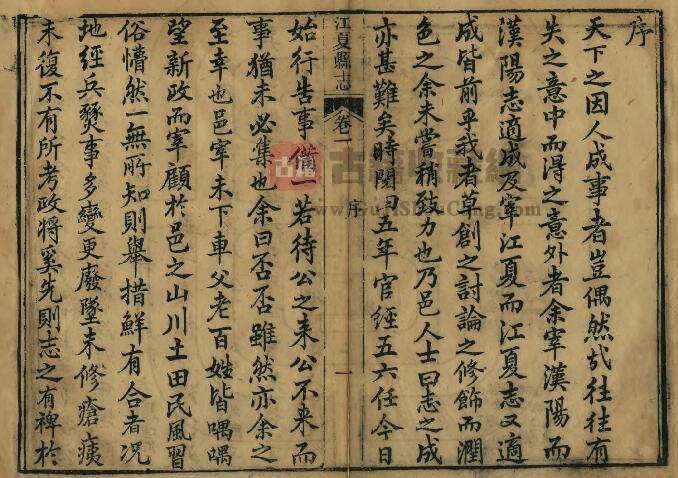 序
天下之因人成事者豈偶然哉往往有
失之意中而得之意外者余宰漢陽而
漢陽志適成及宰江夏而江夏志又適
成皆前乎我者草創之討論之修飾而潤
色之余未嘗稍效力也乃邑人士曰志之成
亦甚難矣時閱曰五年官經五六任今日
江夏縣志
卷一
序
一
始行告事備一若待公之来公不来而
事猶未必集也余曰否否雖然亦余之
至幸也邑宰未下車父老百姓皆喁喁
望新政而宰顧於邑之山川土田民風習
俗懵然一無所知則舉措鮮有合者况
地經兵燹事多變更廢墜未修瘡痍
未復不有所考政將奚先則志之有裨於